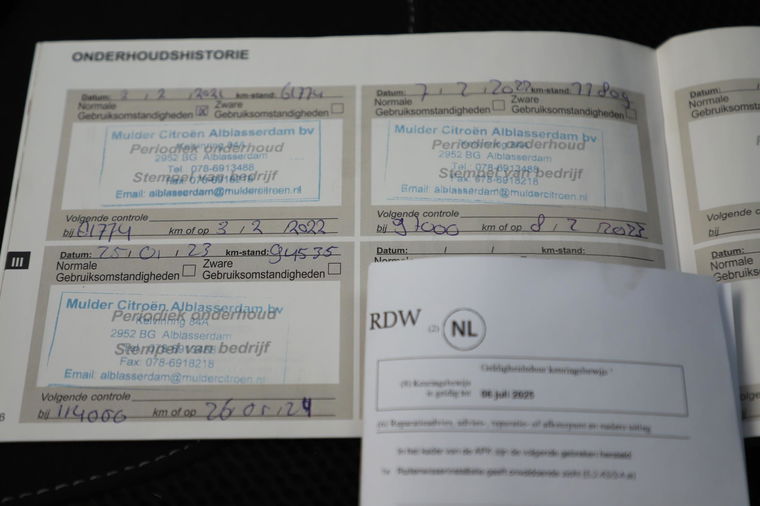 ONDERHOUDSHISTORIE
Datum: 3, 2, 2021 km-stand: 61774
Normale Gebruiksomstandigheden ☒ Zware Gebruiksomstandigheden
Mulder Citroën Alblasserdam bv
Periodiek onderhoud
2952 BG Alblasserdam
Tel. 078-6913488
Stempel van bedrijf
Email: alblasserdam@muldercitroen.nl
Volgende controle
bij 81774 km of op 3, 2 2022
Datum: 7, 2, 2022 km-stand: 77809
Normale Gebruiksomstandigheden Zware Gebruiksomstandigheden
Mulder Citroën Alblasserdam bv
Periodiek onderhoud
2952 BG Alblasserdam
Tel: 078-6913488
Stempel van bedrijf
Email: alblasserdam@muldercitroen.nl
Volgende controle
bij 97000 km of op 8, 2 2023
III
Datum: 25, 01, 23 km-stand: 94535
Normale Gebruiksomstandigheden Zware Gebruiksomstandigheden
Mulder Citroën Alblasserdam bv
Periodiek onderhoud
Kelvinring 84A
2952 BG Alblasserdam
Stempel van bedrijf
Fax: 078-6918218
Email: alblasserdam@muldercitroen.nl
Volgende controle
bij 114000 km of op 26, 01, 24
Datum: / / km-stand:
RDW (2) NL
Geldigheidsduur keuringsbewijs
(8) Keuringsbewijs
is geldig tot 06 juli 2025
(6) Reparatieadvies, advies-, reparatie- of afkeurpunt en nadere uitleg
In het kader van de APK zijn de volgende gebreken hersteld